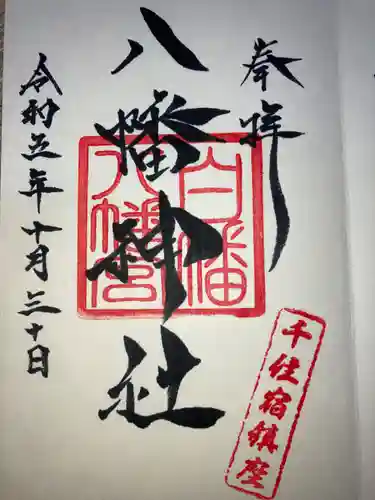 奉拝
八幡神社
白幡
八幡宮
令和五年十月三十日
千住宿鎮座